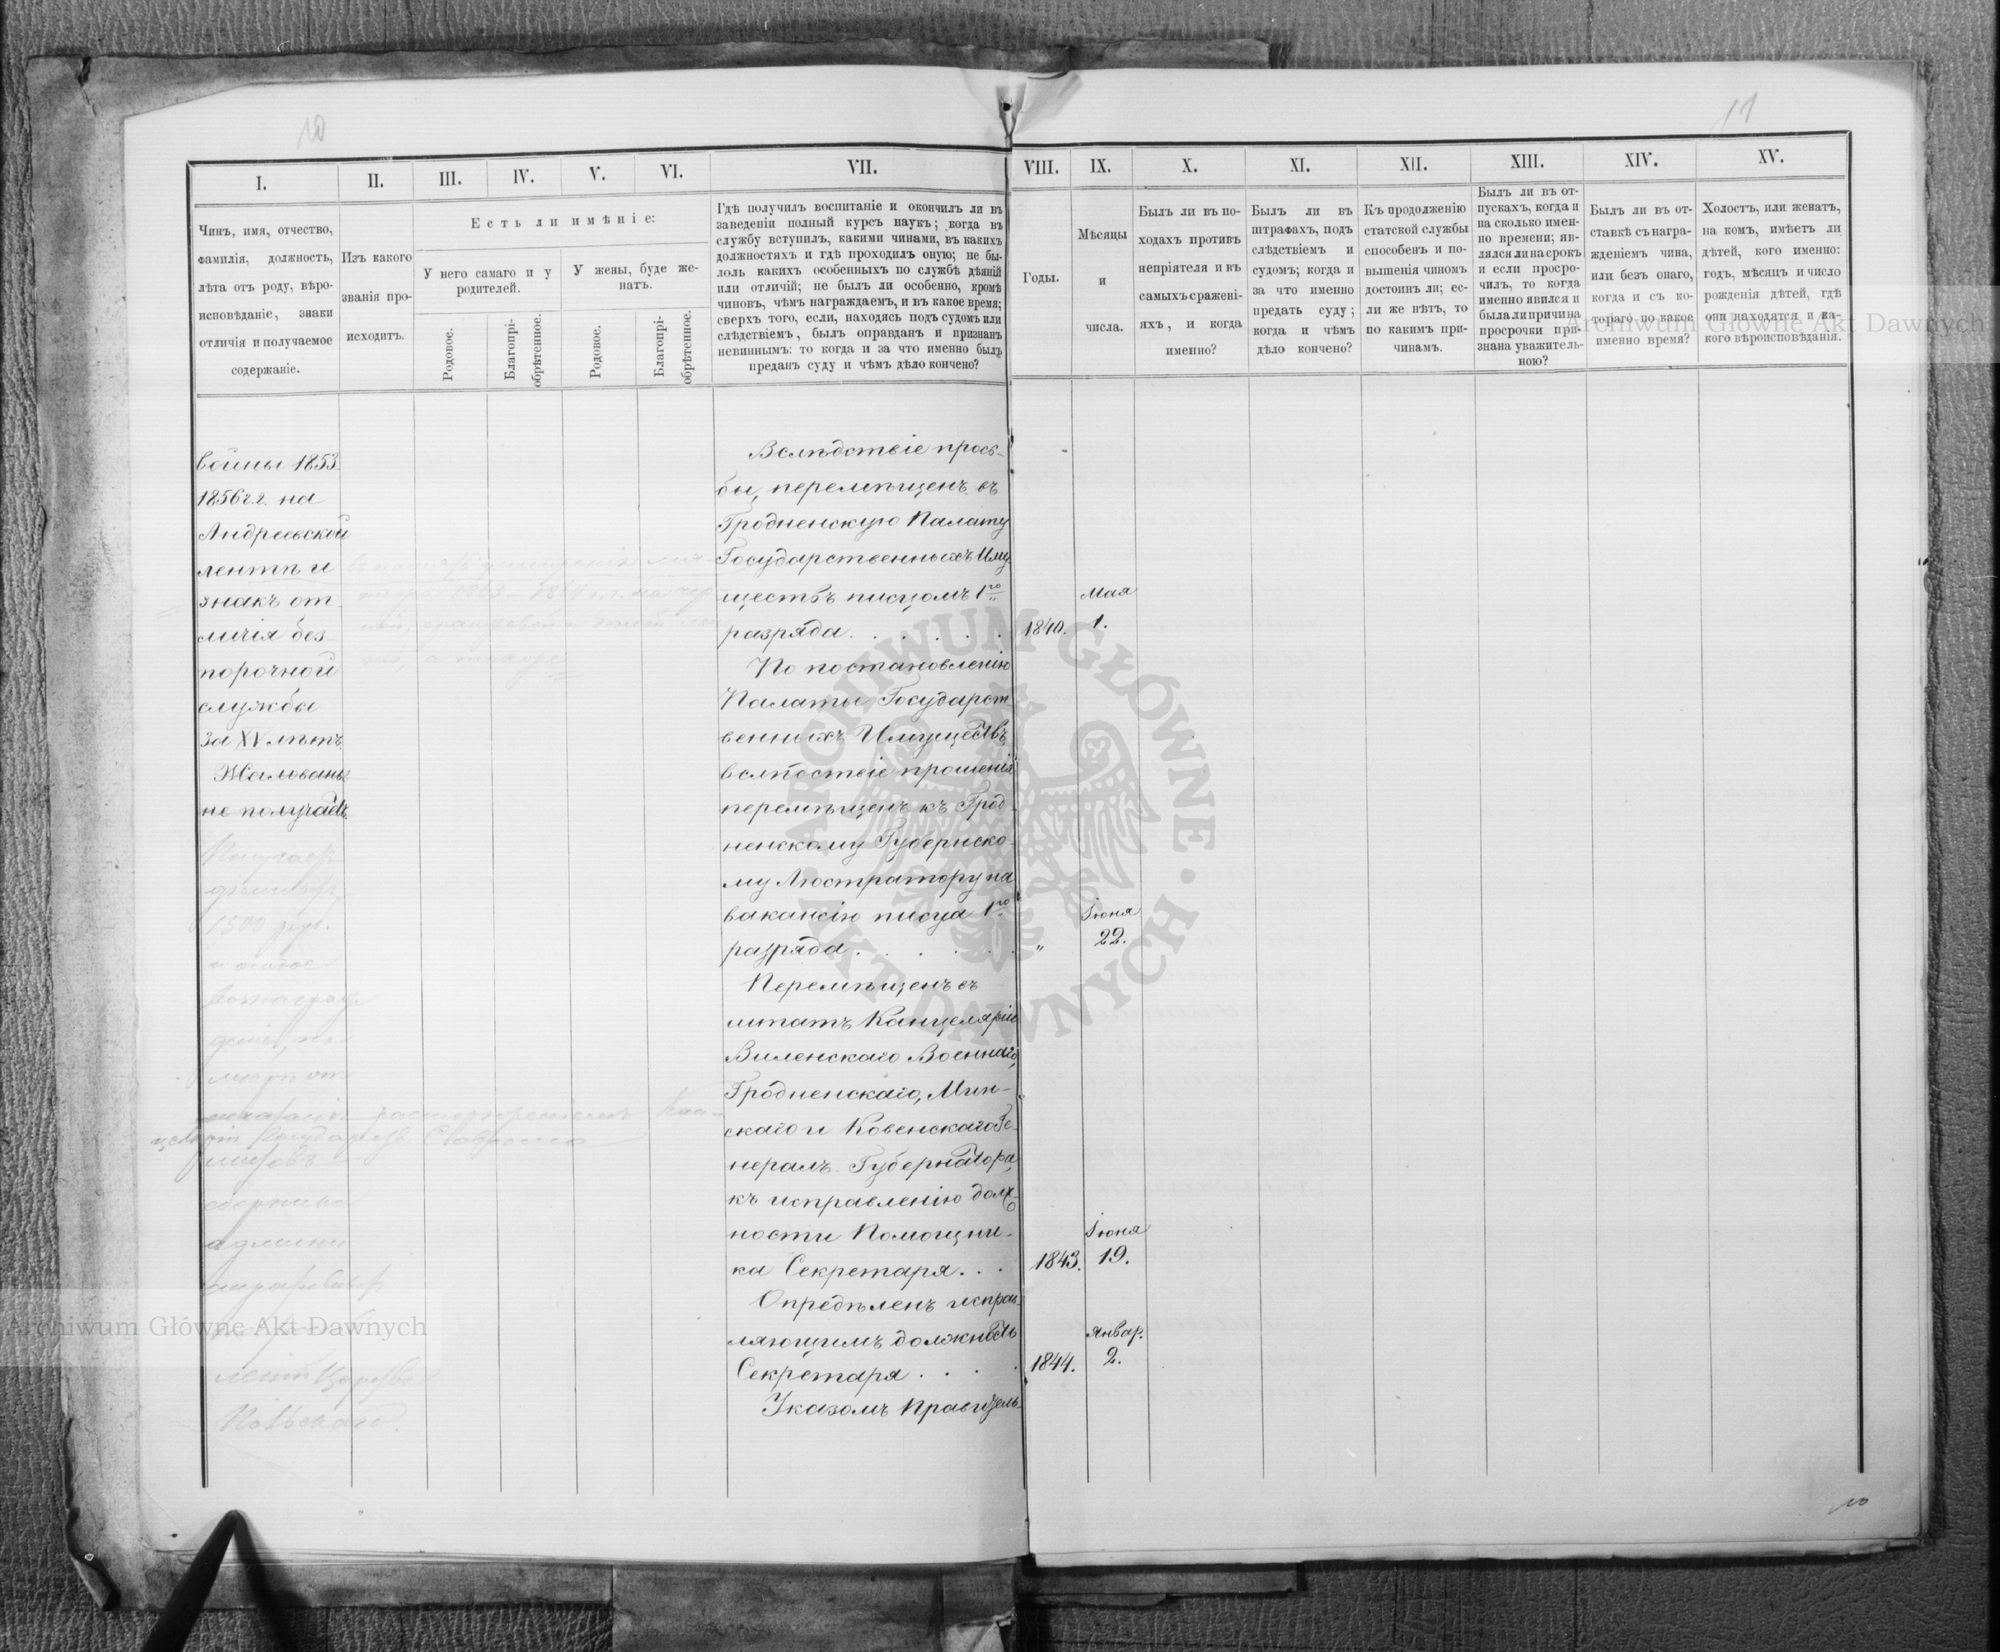 10
11
I.
II.
III.
IV.
V.
VI.
VII.
VIII.
IX.
X.
XI.
XII.
XIII.
XIV.
XV.
Чинъ, имя, отчество,
фамилія, должность,
лѣта отъ роду, вѣро-
исповѣданіе, знаки
отличія и получаемое
содержаніе.
Изъ какого
званія про-
исходитъ.
Есть ли имѣніе:
У него самаго и у
родителей.
У жены, буде же-
натъ.
Родовое.
Благопрі-
обрѣтенное.
Родовое.
Благопрі-
обрѣтенное.
Гдѣ получилъ воспитаніе и окончилъ ли въ
заведеніи полный курсъ наукъ; когда въ
службу вступилъ, какими чинами, въ какихъ
должностяхъ и гдѣ проходилъ оную; не бы-
лоль какихъ особенныхъ по службѣ дѣяній
или отличій; не былъ ли особенно, кромѣ
чиновъ, чѣмъ награждаемъ, и въ какое время;
сверхъ того, если, находясь подъ судомъ или
слѣдствіемъ, былъ оправданъ и признанъ
невиннымъ: то когда и за что именно былъ
преданъ суду и чѣмъ дѣло кончено?
Годы.
Мѣсяцы
и
числа.
Былъ ли въ по-
ходахъ противъ
непріятеля и въ
самыхъ сражені-
яхъ, и когда
именно?
Былъ ли въ
штрафахъ, подъ
слѣдствіемъ и
судомъ; когда и
за что именно
преданъ суду;
когда и чѣмъ
дѣло кончено?
Къ продолженію
статской службы
способенъ и по-
вышенія чиномъ
достоинъ ли; ес-
ли же нѣтъ, то
по какимъ при-
чинамъ.
Былъ ли въ от-
пускахъ, когда и
на сколько имен-
но времени; яв-
лялся ли на срокъ
и если просро-
чилъ, то когда
именно явился и
была ли причина
просрочки при-
знана уважитель-
ною?
Былъ ли въ от-
ставкѣ съ награ-
жденіемъ чина,
или безъ онаго,
когда и съ ко-
тораго по какое
именно время?
Холостъ, или женатъ,
на комъ, имѣетъ ли
дѣтей, кого именно:
годъ, мѣсяцъ и число
рожденія дѣтей, гдѣ
они находятся и ка-
кого вѣроисповѣданія.
войны 1853
1856 г.г. на
Андреевской
лентѣ и
знакъ от
личія без
порочной
службы
за XV лѣтъ.
Жалованья
не получаетъ.
1500 руб.
Вслѣдствіе прось-
бы, перемѣщенъ въ
Гродненскую Палату
Государственныхъ Иму
ществъ писцомъ 1го
разряда. . . . . .
1840.
Мая
1.
По постановленію
Палаты Государст
венныхъ Имуществъ,
вслѣдствіе прошенія
перемѣщенъ къ Грод-
ненскому Губернско-
му Люстратору на
вакансію писца 1го
разряда. . . . . .
"
Іюня
22.
Перемѣщенъ въ
штатъ Канцеляріи
Виленскаго Военнаго,
Гродненскаго, Мин-
скаго и Ковенскаго Ге-
нералъ-Губернатора,
къ исправленію долж-
ности Помощни-
ка Секретаря. . .
1843.
Іюня
19.
Опредѣленъ исправ-
ляющимъ должность
Секретаря . . . .
1844.
Январ.
2.
Указомъ Правитель
10
ARCHIWUM GŁÓWNE · AKT DAWNYCH ·
Archiwum Główne Akt Dawnych
Archiwum Główne Akt Dawnych